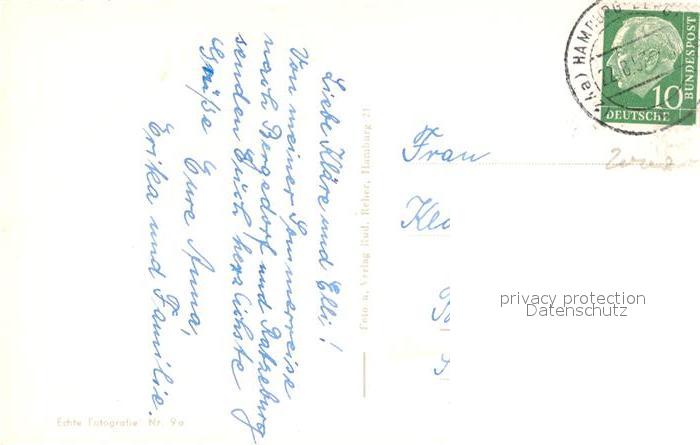 Liebe Kläre und Elli!
Von meiner Sommerreise
nach Bergedorf und Ratzeburg
senden Euch herzlichste
Grüße Eure Anna,
Erika und Familie.
Echte Fotografie Nr. 9a
Foto u. Verlag Rud. Reher, Hamburg 21
(24a) HAMBURG-BERG
10
DEUTSCHE
BUNDESPOST
Frau
privacy protection
Datenschutz